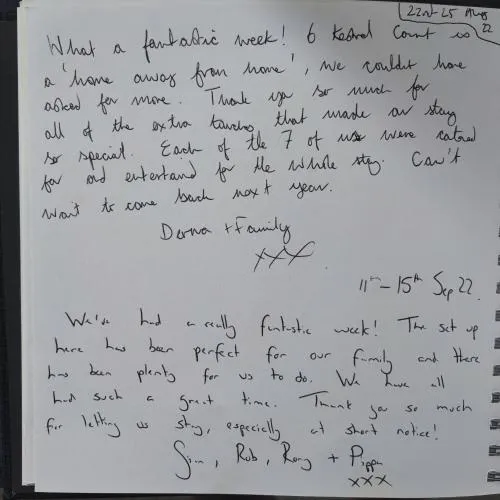 22nd-25 Aug 22
What a fantastic week! 6 Kestrel Court is
a 'home away from home', we couldnt have
asked for more. Thank you so much for
all of the extra touches that made our stay
so special. Each of the 7 of us were catered
for and entertained for the whole stay. Can't
wait to come back next year.
+ Family
xxx
11th - 15th Sep 22.
We've had a really fantastic week! The set up
here has been perfect for our family and there
has been plenty for us to do. We have all
had such a great time. Thank you so much
for letting us stay, especially at short notice!
Rob, Rory + Pippa
xxx